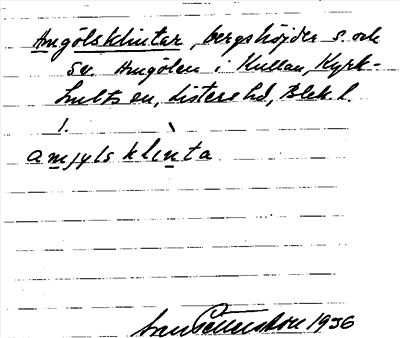 Amgölsklintar, bergshöjder s. och
sv. Amgölen i Kullan, Kyrk-
hults sn, Listers hd, Blek. l.
amjyls klinta
1936